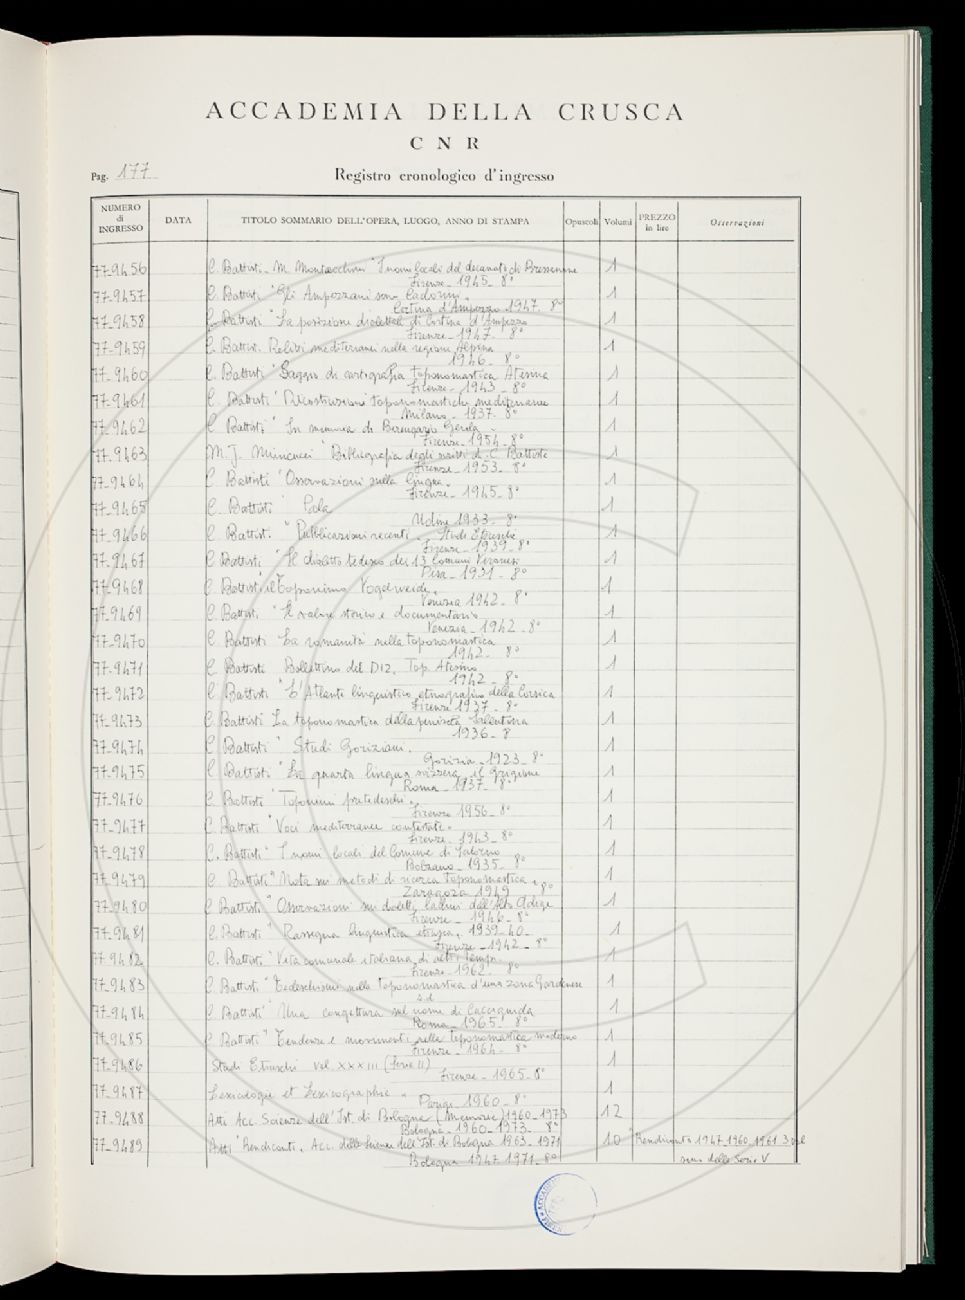 ACCADEMIA DELLA CRUSCA
C N R
Pag. 177
Registro cronologico d'ingresso
NUMERO di INGRESSO DATA TITOLO SOMMARIO DELL'OPERA, LUOGO, ANNO DI STAMPA Opuscoli Volumi PREZZO in lire Osservazioni
77-9456 C. Battisti - M. Montecchini "I nomi locali del decanato di Bressanone 1
Firenze - 1945 - 8°
77-9457 C. Battisti "Gli Ampezzani sono Ladini. 1
Cortina d'Ampezzo 1947. 8°
77-9458 C. Battisti "La posizione dialettale di Cortina d'Ampezzo 1
Firenze - 1947. 8°
77-9459 C. Battisti. Relitti mediterranei nella regione Alpina 1
1946 - 8°
77-9460 C. Battisti "Saggio di cartografia toponomastica Atesina 1
Firenze - 1943 - 8°
77-9461 C. Battisti "Ricostruzioni toponomastiche mediterranee 1
Milano - 1937. 8°
77-9462 C. Battisti "In memoria di Berengario Gerola. 1
Firenze - 1954 - 8°
77-9463 M. J. Minicucci "Bibliografia degli scritti di C. Battisti 1
Firenze - 1953 - 8°
77-9464 C. Battisti "Osservazioni sulla lingua. 1
Firenze - 1945 - 8°
77-9465 C. Battisti "Pola 1
Udine 1933 - 8°
77-9466 C. Battisti. "Pubblicazioni recenti. Studi Etruschi 1
Firenze - 1939 - 8°
77-9467 C. Battisti "Il dialetto tedesco dei 13 Comuni Veronesi 1
Pisa - 1931 - 8°
77-9468 C. Battisti "il toponimo Vogelweide. 1
Venezia 1942 - 8°
77-9469 C. Battisti "Il valore storico e documentario 1
Venezia - 1942 - 8°
77-9470 C. Battisti La romanità nella toponomastica 1
1942 - 8°
77-9471 C. Battisti Bollettino del Diz. Top. Atesino 1
1942 - 8°
77-9472 C. Battisti "L'Atlante linguistico etnografico della Corsica 1
Firenze 1937 - 8°
77-9473 C. Battisti La toponomastica della penisola Salentina 1
1936 - 8
77-9474 C. Battisti "Studi Goriziani. 1
Gorizia - 1923 - 8°
77-9475 C. Battisti "La quarta lingua svizzera, il Grigione 1
Roma - 1937 - 8°
77-9476 C. Battisti "Toponimi pretedeschi. 1
Firenze 1956 - 8°
77-9477 C. Battisti "Voci mediterranee contestate. 1
Firenze - 1943 - 8°
77-9478 C. Battisti "I nomi locali del Comune di Salorno 1
Bolzano - 1935 - 8°
77-9479 C. Battisti "Nota sui metodi di ricerca toponomastica. 1
Zaragoza 1949 - 8°
77-9480 C. Battisti "Osservazioni sui dialetti ladini dell'Alto Adige 1
Firenze - 1946 - 8°
77-9481 C. Battisti "Rassegna linguistica etrusca. 1939-40 - 1
Firenze - 1942 - 8°
77-9482 C. Battisti "Vita comunale italiana di altri tempi. 1
Firenze - 1962. 8°
77-9483 C. Battisti "Tedeschismi nella toponomastica d'una zona Gardenese 1
s.d.
77-9484 C. Battisti "Una congettura sul nome di Cacciaguida 1
Roma - 1965 - 8°
77-9485 C. Battisti "Tendenze e movimenti nella toponomastica moderna 1
Firenze - 1964 - 8°
77-9486 Studi Etruschi vol. XXXIII (Serie II) 1
Firenze - 1965 - 8°
77-9487 Lexicologie et Lexicographie. 1
Parigi - 1960 - 8°
77-9488 Atti Acc. Scienze dell'Ist. di Bologna (Memorie) 1960-1973 12
Bologna - 1960-1973 - 8°
77-9489 Atti "Rendiconti. Acc. delle Scienze dell'Ist. di Bologna 1963-1971 10 Rendiconti 1947-1960-1961 3 vol
Bologna 1947-1971 - 8° sono della Serie V